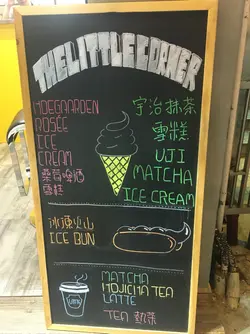 THE LITTLE CORNER
HOEGAARDEN
ROSÉE
ICE
CREAM
桑莓啤酒
雪糕
宇治抹茶
雪糕
UJI
MATCHA
ICE CREAM
冰凍火山
ICE BUN
MATCHA
HOJICHA TEA
LATTE
TEA 熱茶